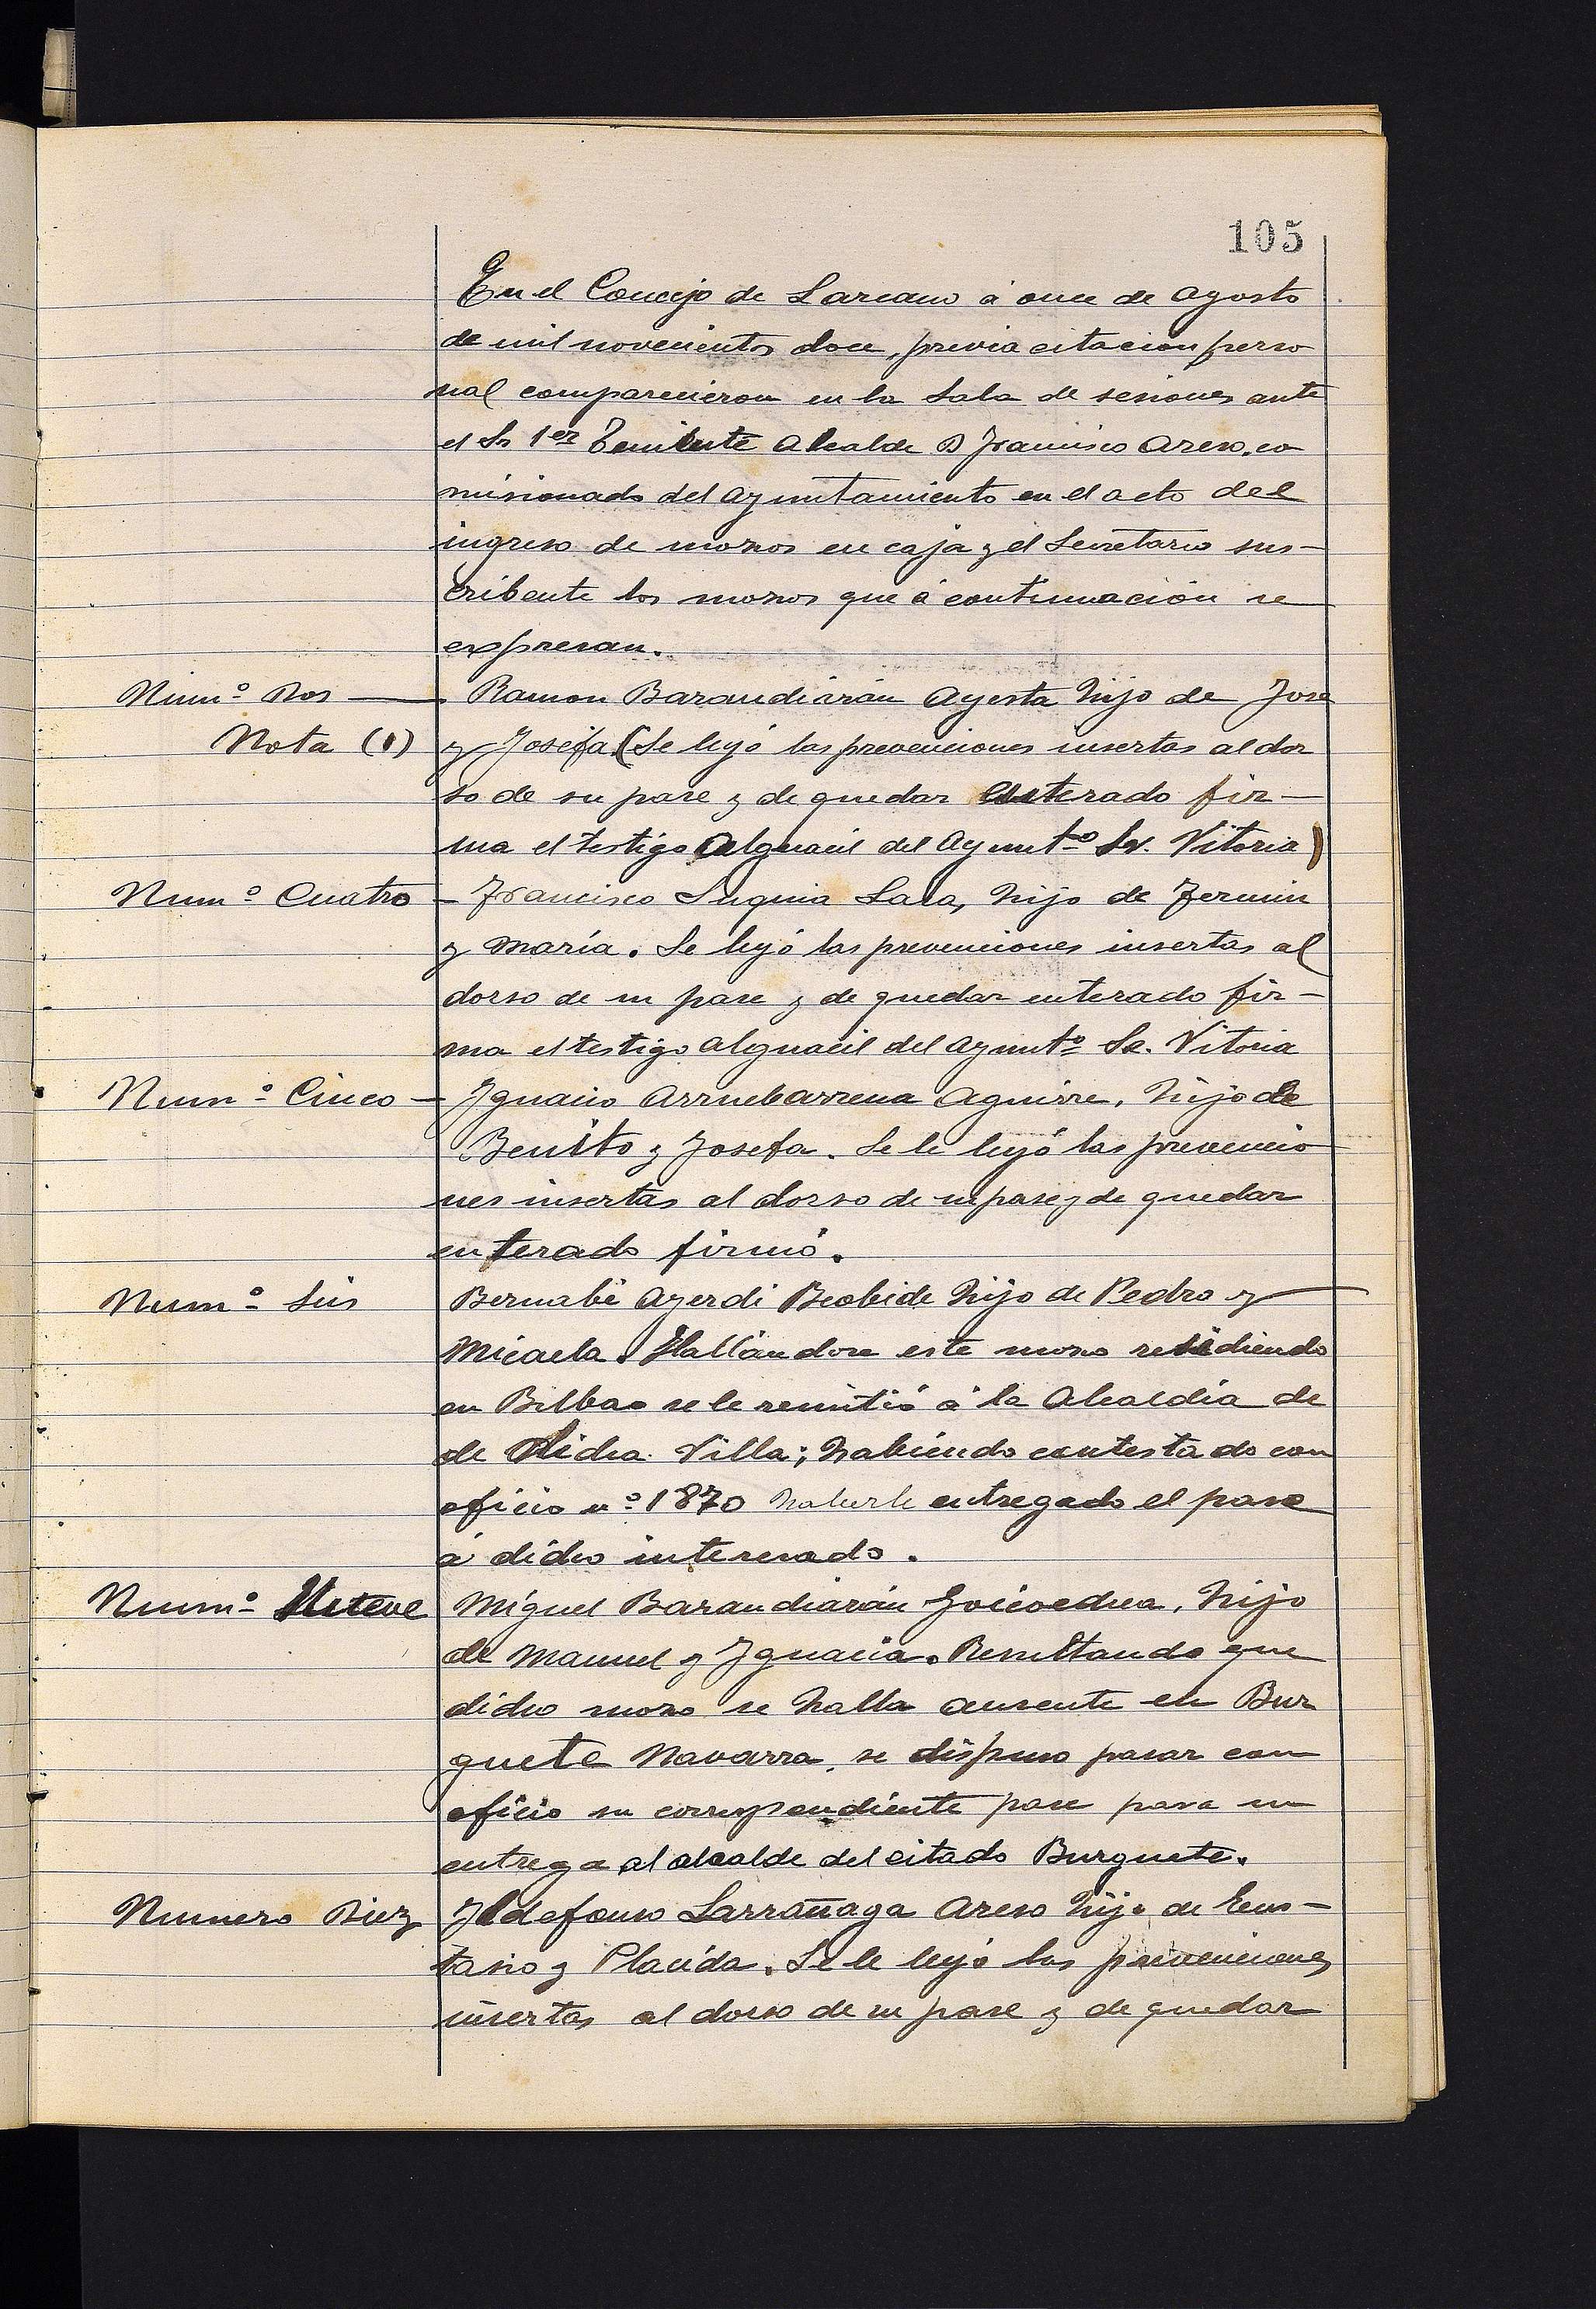 105
En el Concejo de Lazcano á once de Agosto
de mil novecientos doce, previa citación perso
nal comparecieron en la Sala de sesiones ante
el Sr 1er Teniente Alcalde D Francisco Areso, co
misionado del Ayuntamiento en el acto del
ingreso de mozos en caja y el Secretario sus-
cribente los mozos que á continuación se
expresan.
Numº Dos — Ramon Barandiarán Ayesta hijo de Jose
Nota (1) y Josefa. (Se leyó las prevenciones insertas al dor
so de su pase y de quedar enterado fir-
ma el testigo Alguacil del Ayuntº Sr. Vitoria)
Numº Cuatro - Francisco Suquia Lasa, hijo de Fermin
y María. Se leyó las prevenciones insertas al
dorso de su pase y de quedar enterado fir-
ma el testigo alguacil del Ayuntº Sr. Vitoria
Numº Cinco - Ignacio Arruebarrena Aguirre, hijo de
Benito y Josefa. Se le leyó las prevencio
nes insertas al dorso de su pase y de quedar
enterado firmó.
Numº Seis Bernabé Ayerdi Beobide hijo de Pedro y
Micaela. Hallándose este mozo residiendo
en Bilbao se le remitió á la Alcaldía de
de dicha Villa; habiendo contestado con
oficio nº 1870 haberle entregado el pase
á dicho interesado.
Numº Nueve Miguel Barandiarán Goicoechea, hijo
de Manuel y Ignacia. Resultando que
dicho mozo se halla ausente en Bur
guete Navarra, se dispuso pasar con
oficio su correspondiente pase para su
entrega al alcalde del citado Burguete.
Numero Diez Ildefonso Larrañaga Areso hijo de Eus-
tasio y Placida. Se le leyó las prevenciones
insertas al dorso de su pase y de quedar